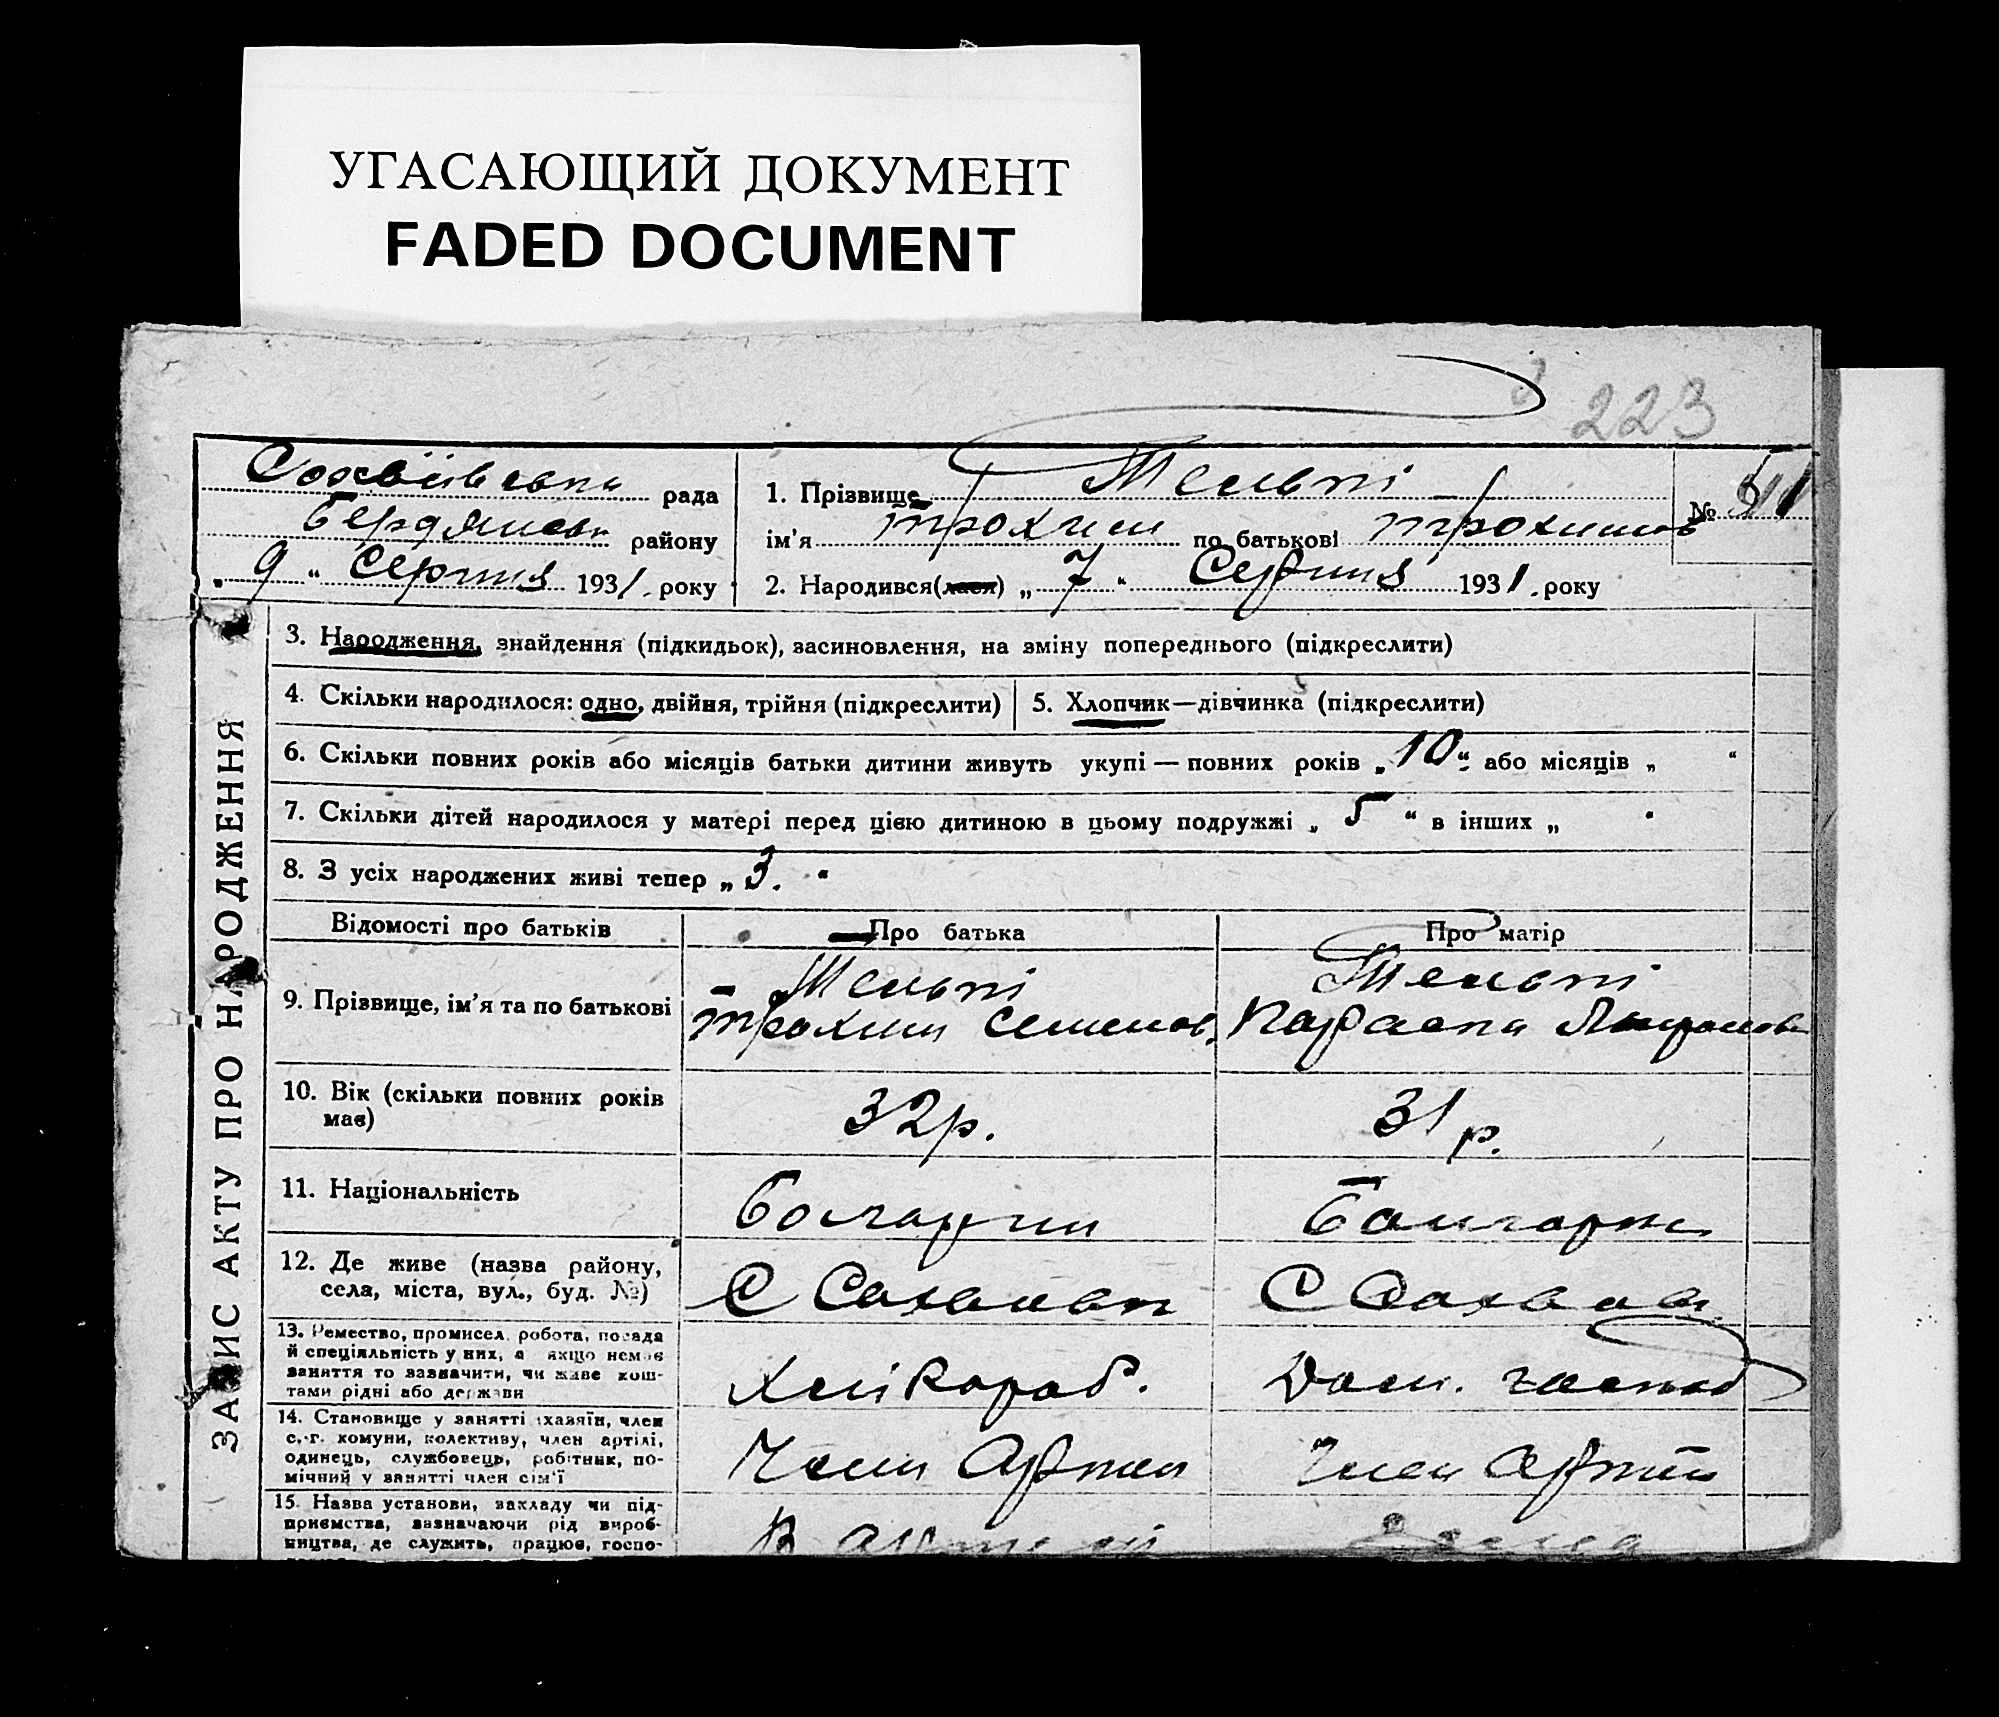 УГАСАЮЩИЙ ДОКУМЕНТ
FADED DOCUMENT
223
рада
Бердянськ району
„ 9 “ Серпня 1931. року
1. Прізвище Тельпі
ім'я Трохим по батькові Трохимов
№
2. Народився(лася) „ 7 “ Серпня 1931. року
ЗАПИС АКТУ ПРО НАРОДЖЕННЯ
3. Народження, знайдення (підкидьок), засиновлення, на зміну попереднього (підкреслити)
4. Скільки народилося: одно, двійня, трійня (підкреслити)
5. Хлопчик—дівчинка (підкреслити)
6. Скільки повних років або місяців батьки дитини живуть укупі — повних років „ 10 “ або місяців „ “
7. Скільки дітей народилося у матері перед цією дитиною в цьому подружжі „ 5 “ в інших „ “
8. З усіх народжених живі тепер „ 3. “
Відомості про батьків
Про батька
Про матір
9. Прізвище, ім'я та по батькові
Тельпі
Трохим Семенов.
Тельпі
Параска
10. Вік (скільки повних років
має)
32 р.
31 р.
11. Національність
Болгарин
Болгарка
12. Де живе (назва району,
села, міста, вул., буд. №)
С
С
13. Ремество, промисел, робота, посада
й спеціяльність у них, а якщо немає
заняття то зазначити, чи живе кош-
тами рідні або держави
Хлібороб.
Дом. господ
14. Становище у занятті (хазяїн, член
с.-г. комуни, колективу, член артілі,
одинець, службовець, робітник, по-
мічний у занятті член сім'ї
Член Артіли
Член Артіли
15. Назва установи, закладу чи під-
приємства, зазначаючи рід вироб-
ництва, де служить, працює, госпо-
В артілі